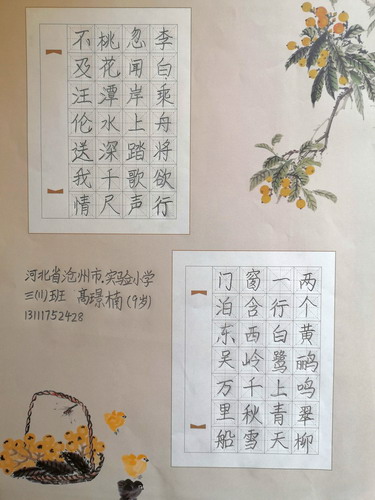 李白乘舟将欲行
忽闻岸上踏歌声
桃花潭水深千尺
不及汪伦送我情
河北省沧州市实验小学
三(11)班 高璟楠(9岁)
13111752428
两个黄鹂鸣翠柳
一行白鹭上青天
窗含西岭千秋雪
门泊东吴万里船